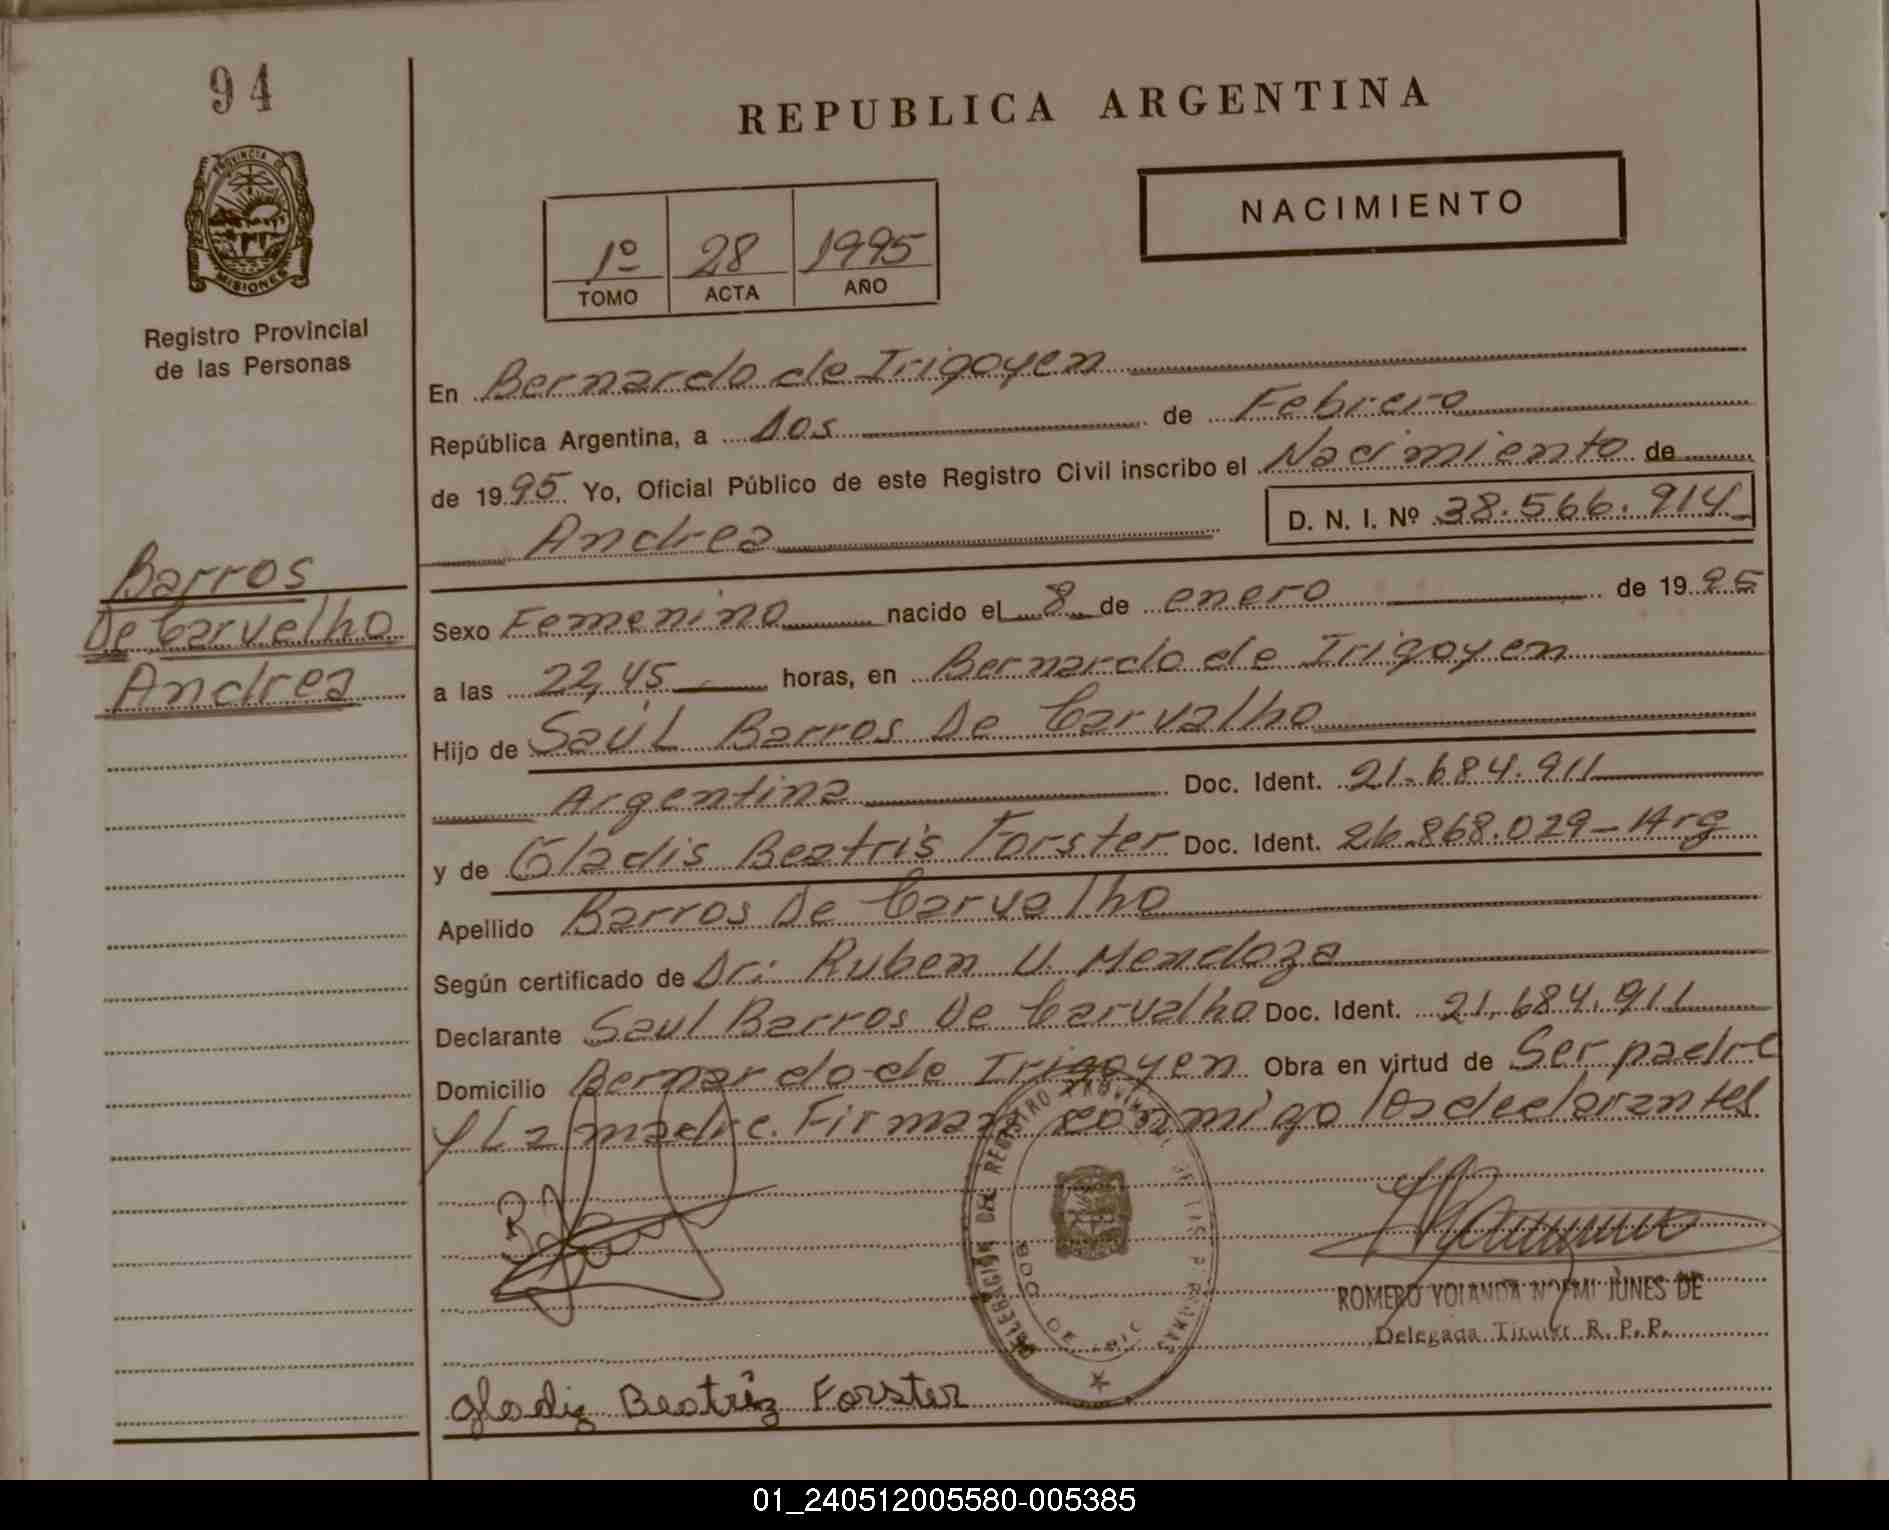 94
PROVINCIA DE
MISIONES
Registro Provincial
de las Personas
REPUBLICA ARGENTINA
NACIMIENTO
1º 28 1995
TOMO ACTA AÑO
En Bernardo de Irigoyen
República Argentina, a Dos de Febrero
de 1995 Yo, Oficial Público de este Registro Civil inscribo el Nacimiento de
Andrea D. N. I. Nº 38.566.914
Barros
De Carvalho
Andrea
Sexo Femenino nacido el 8 de enero de 1995
a las 22,45 horas, en Bernardo de Irigoyen
Hijo de Saúl Barros De Carvalho
Argentina Doc. Ident. 21.684.911
y de Gladis Beatris Forster Doc. Ident. 26.868.029-Arg
Apellido Barros De Carvalho
Según certificado de Dr: Ruben U. Mendoza
Declarante Saul Barros De Carvalho Doc. Ident. 21.684.911
Domicilio Bernardo de Irigoyen Obra en virtud de Ser padre
y La madre. Firman conmigo los declarantes
DELEGACION DEL REGISTRO PROVINCIAL DE LAS PERSONAS
BDO. DE IRIG
ROMERO YOLANDA NOEMI JUNES DE
Delegada Titular R. P. P.
Gladiz Beatríz Forster
01_240512005580-005385